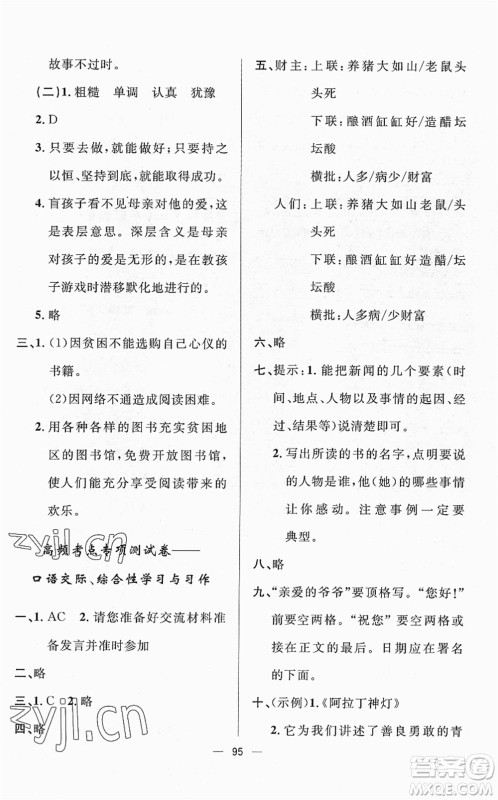 故事不过时。
(二)1. 粗糙 单调 认真 犹豫
2. D
3. 只要去做,就能做好;只要持之
以恒、坚持到底就能取得成功。
4. 盲孩子看不见母亲对他的爱,这
是表层意思。深层含义是母亲
对孩子的爱是无形的,是在教孩
子游戏时潜移默化地进行的。
5. 略
三、1. (1)因贫困不能选购自己心仪的
书籍。
(2)因网络不通造成阅读困难。
2. 用各种各样的图书充实贫困地
区的图书馆,免费开放图书馆,
使人们能充分享受阅读带来的
欢乐。
高频考点专项测试卷——
口语交际、综合性学习与习作
一、1. AC 2. 请您准备好交流材料准
备发言并准时参加
二、略
三、1. C 2. 略
四、略
五、财主:上联:养猪大如山/老鼠头
头死
下联:酿酒缸缸好/造醋坛
坛酸
横批:人多/病少/财富
人们:上联:养猪大如山老鼠/头
头死
下联:酿酒缸缸好造醋/坛
坛酸
横批:人多病/少财富
六、略
七、提示:1. 能把新闻的几个要素(时
间、地点、人物以及事情的起因、经
过、结果等)交代清楚即可。
2. 写出所读的书的名字,点明要说
的人物是谁,他(她)的哪些事情
让你感动。注意事例一定要
典型。
八、略
九、“亲爱的爷爷”要顶格写。“您好!”
前要空两格。“祝您”要空两格,
接在正文的最后。日期应在署名
的下面。
十、(示例)1.《阿拉丁神灯》
2. 它为我们讲述了善良勇敢的青
95